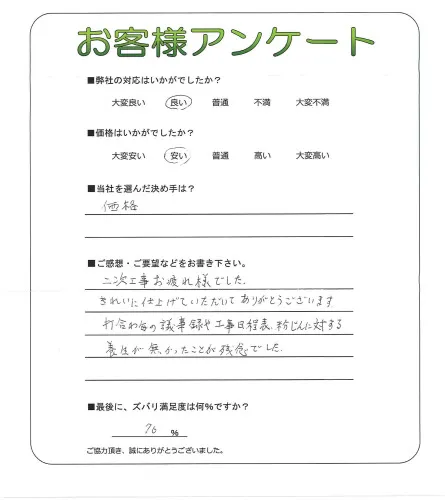 お客様アンケート
■弊社の対応はいかがでしたか?
大変良い 良い 普通 不満 大変不満
■価格はいかがでしたか?
大変安い 安い 普通 高い 大変高い
■当社を選んだ決め手は?
価格
■ご感想・ご要望などをお書き下さい。
二次工事お疲れ様でした。
きれいに仕上げていただいてありがとうございます
打合わ毎の議事録や工事日程表、粉じんに対する
養生が無かったことが残念でした。
■最後に、ズバリ満足度は何%ですか?
70 %
ご協力頂き、誠にありがとうございました。